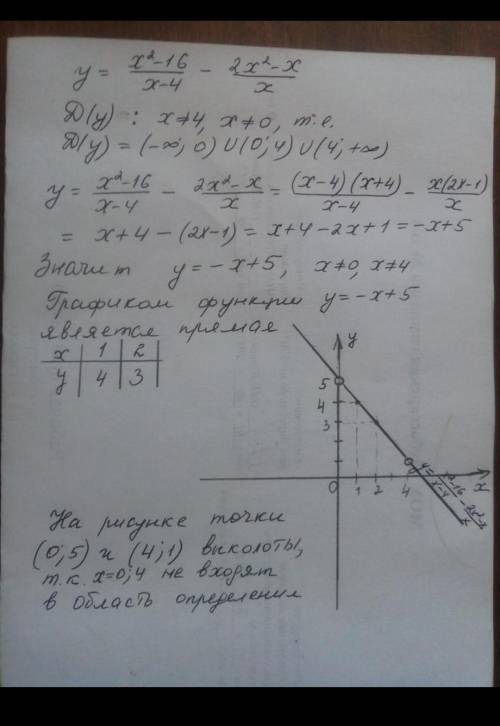 y = (x²-16)/(x-4) - (2x²-x)/x
D(y) : x≠4, x≠0, т.е.
D(y) = (-∞; 0) ∪ (0; 4) ∪ (4; +∞)
y = (x²-16)/(x-4) - (2x²-x)/x = (x-4)(x+4)/(x-4) - x(2x-1)/x
= x+4 - (2x-1) = x+4-2x+1 = -x+5
Значит y = -x+5, x≠0, x≠4
Графиком функции y=-x+5
является прямая
x | 1 | 2
y | 4 | 3
y
5
4
3
0 1 2 4 x
y = (x²-16)/(x-4) - (2x²-x)/x
На рисунке точки
(0; 5) и (4; 1) выколоты,
т.к. x=0; 4 не входят
в область определения